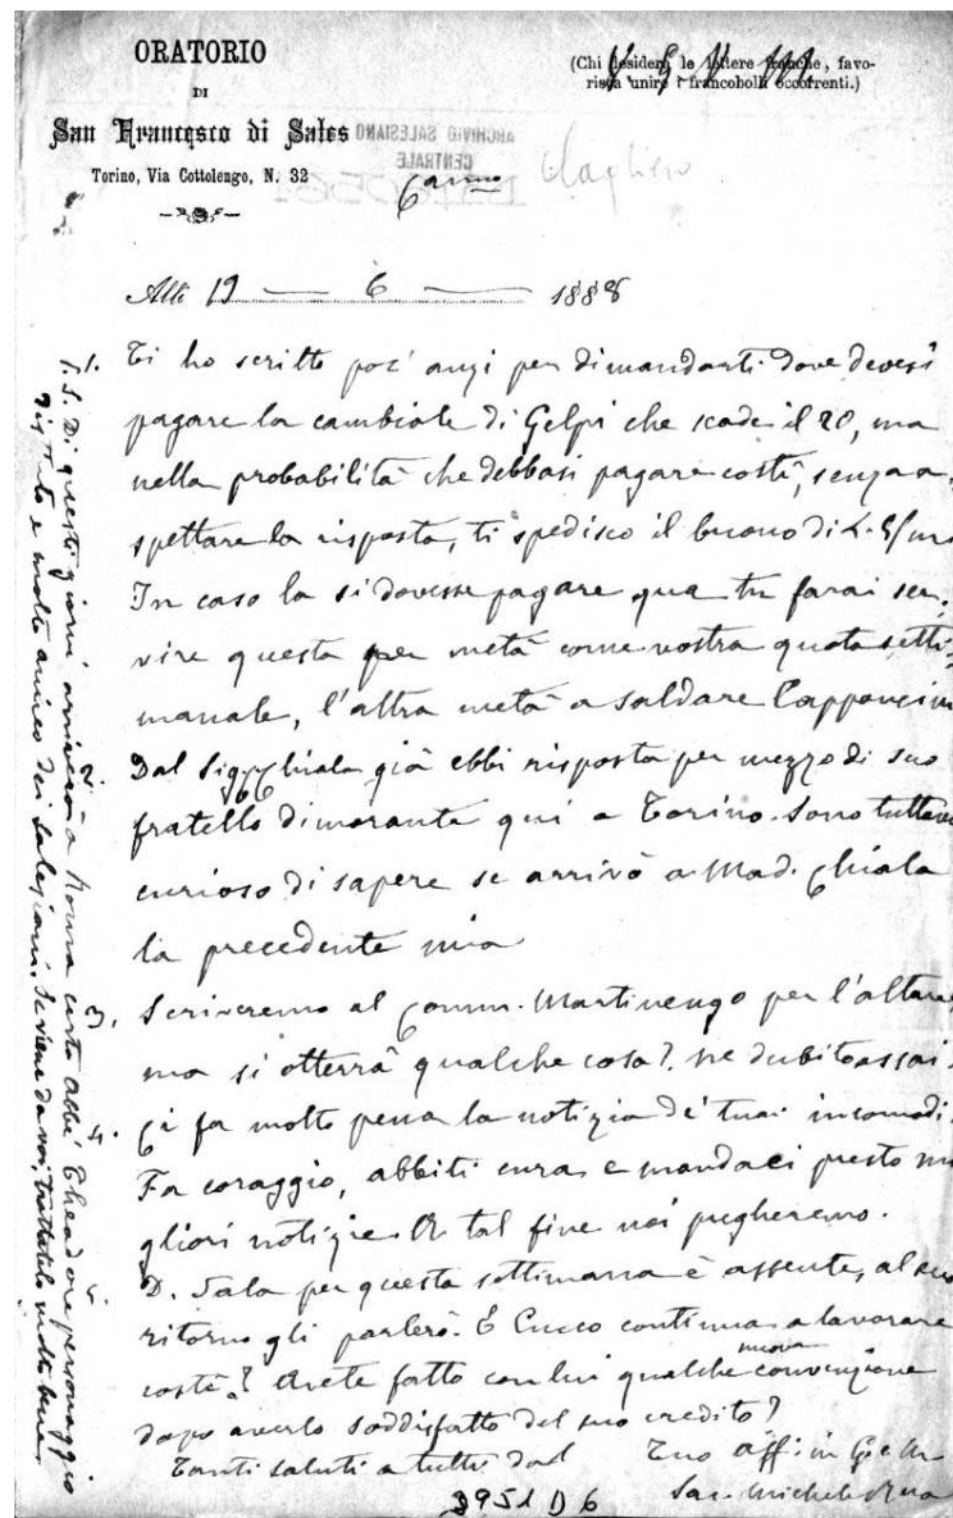 ORATORIO
DI
San Francesco di Sales
Torino, Via Cottolengo, N. 32
(Chi desidera le lettere franche, favo-
risca unire i francobolli occorrenti.)
ARCHIVIO SALESIANO
CENTRALE
Cagliero
C anno
Alli 19 — 6 — 1888
1. Ti ho scritto poc' anzi per dimandarti dove devesi
pagare la cambiale di Gelpi che scade il 20, ma
nella probabilità che debbasi pagare costì, senza a-
spettare la risposta, ti spedisco il buono di L. 5/m
In caso la si dovesse pagare qua tu farai ser-
vire questa per metà come vostra quota setti-
manale, l'altra metà a saldare
2. Dal Sig. Chiala già ebbi risposta per mezzo di suo
fratello dimorante qui a Torino. Sono tuttavia
curioso di sapere se arrivò a Mad. Chiala
la precedente mia
3. Scriveremo al Comm. Martinengo per l'altare,
ma si otterrà qualche cosa? ne dubito assai.
4. Ci fa molto pena la notizia de' tuoi incomodi.
Fa coraggio, abbiti cura e mandaci presto mi
gliori notizie. A tal fine noi pregheremo.
5. D. Sala per questa settimana è assente, al suo
ritorno gli parlerò. E Cucco continua a lavorare
costì? Avete fatto con lui qualche nuova convenzione
dopo averlo soddisfatto del suo credito?
Tanti saluti a tutti dal Tuo aff. in G. e M.
Sac. Michele Rua
3951 D 6
P. S. Di questi giorni arriverà a Roma certo abbé personaggio
distinto e molto amico dei Salesiani. Se viene da voi, trattatelo molto bene.